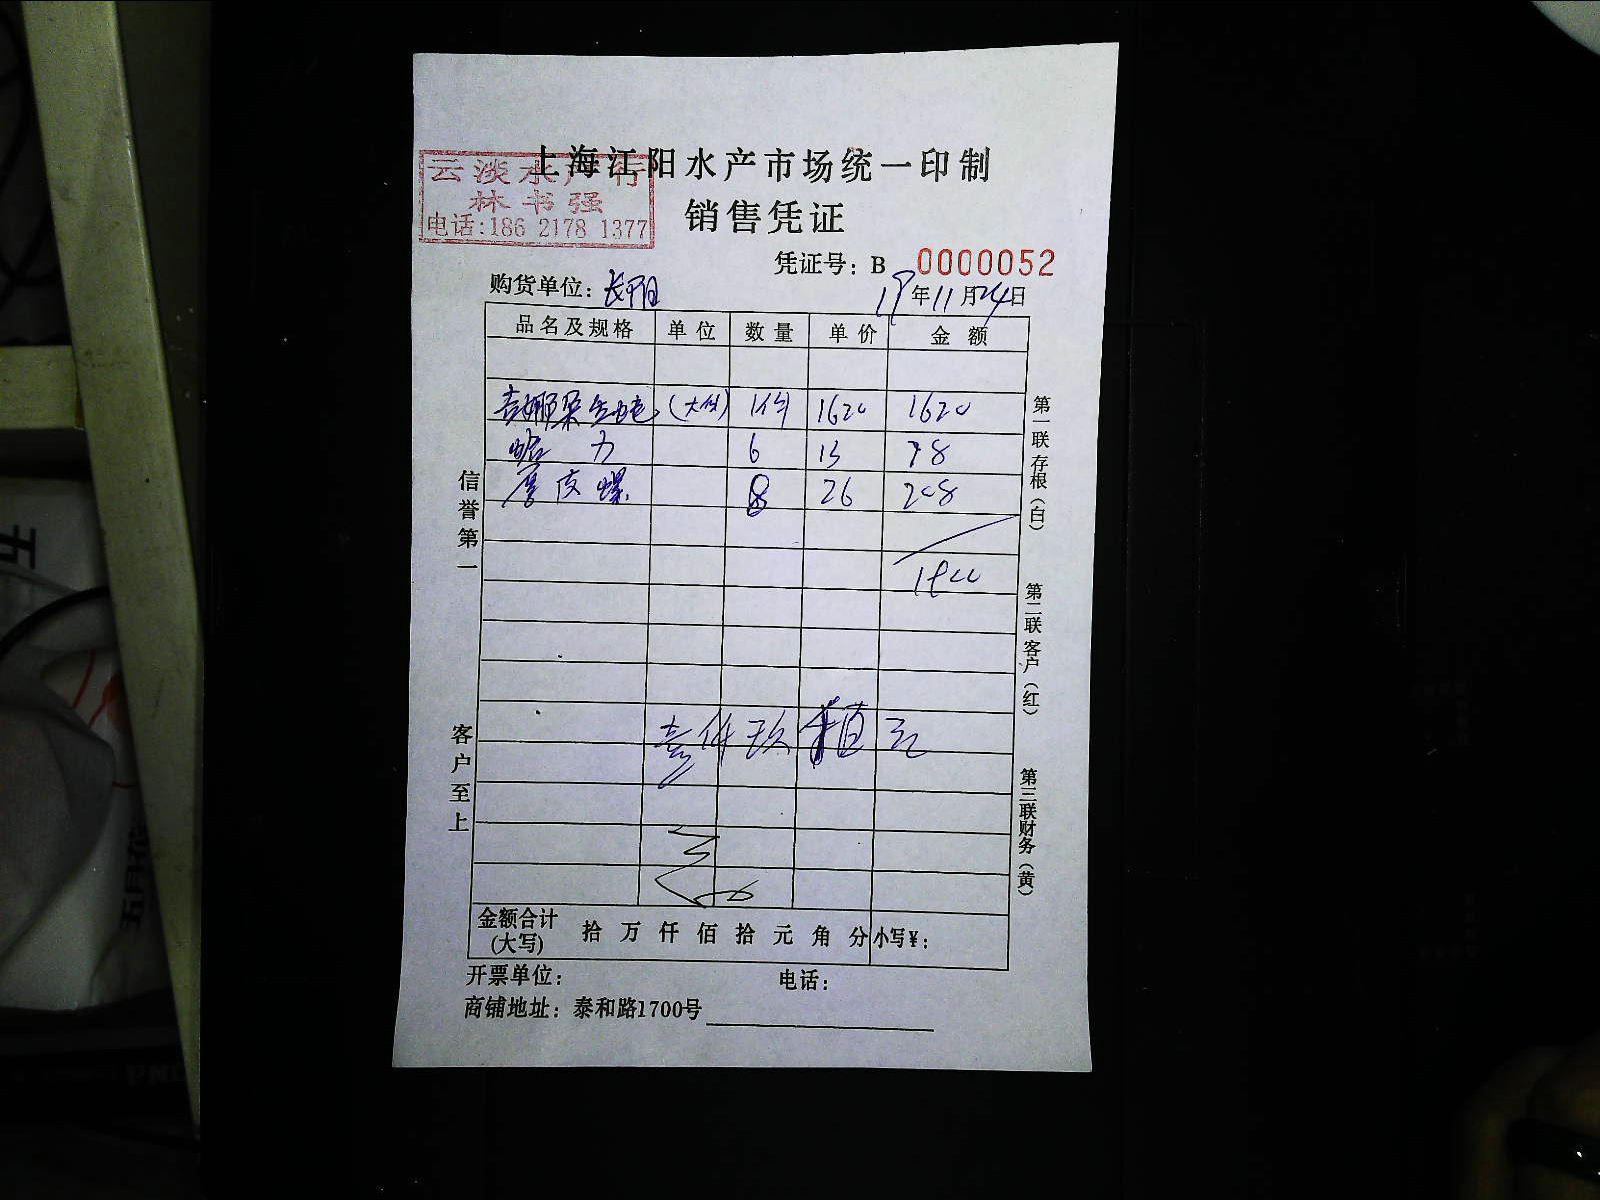 上海江阳水产市场统一印制
云淡水产行
林书强
电话:186 2178 1377
销售凭证
凭证号: B 0000052
购货单位: 长阳
19年11月24日
品名及规格 单位 数量 单价 金额
(大 1 1620 1620
蛤 力 6 13 78
皮螺 8 26 208
壹仟玖 元
金额合计(大写) 拾 万 仟 佰 拾 元 角 分 小写¥:
开票单位: 电话:
商铺地址: 泰和路1700号
信誉第一
客户至上
第一联存根(白)
第二联客户(红)
第三联财务(黄)